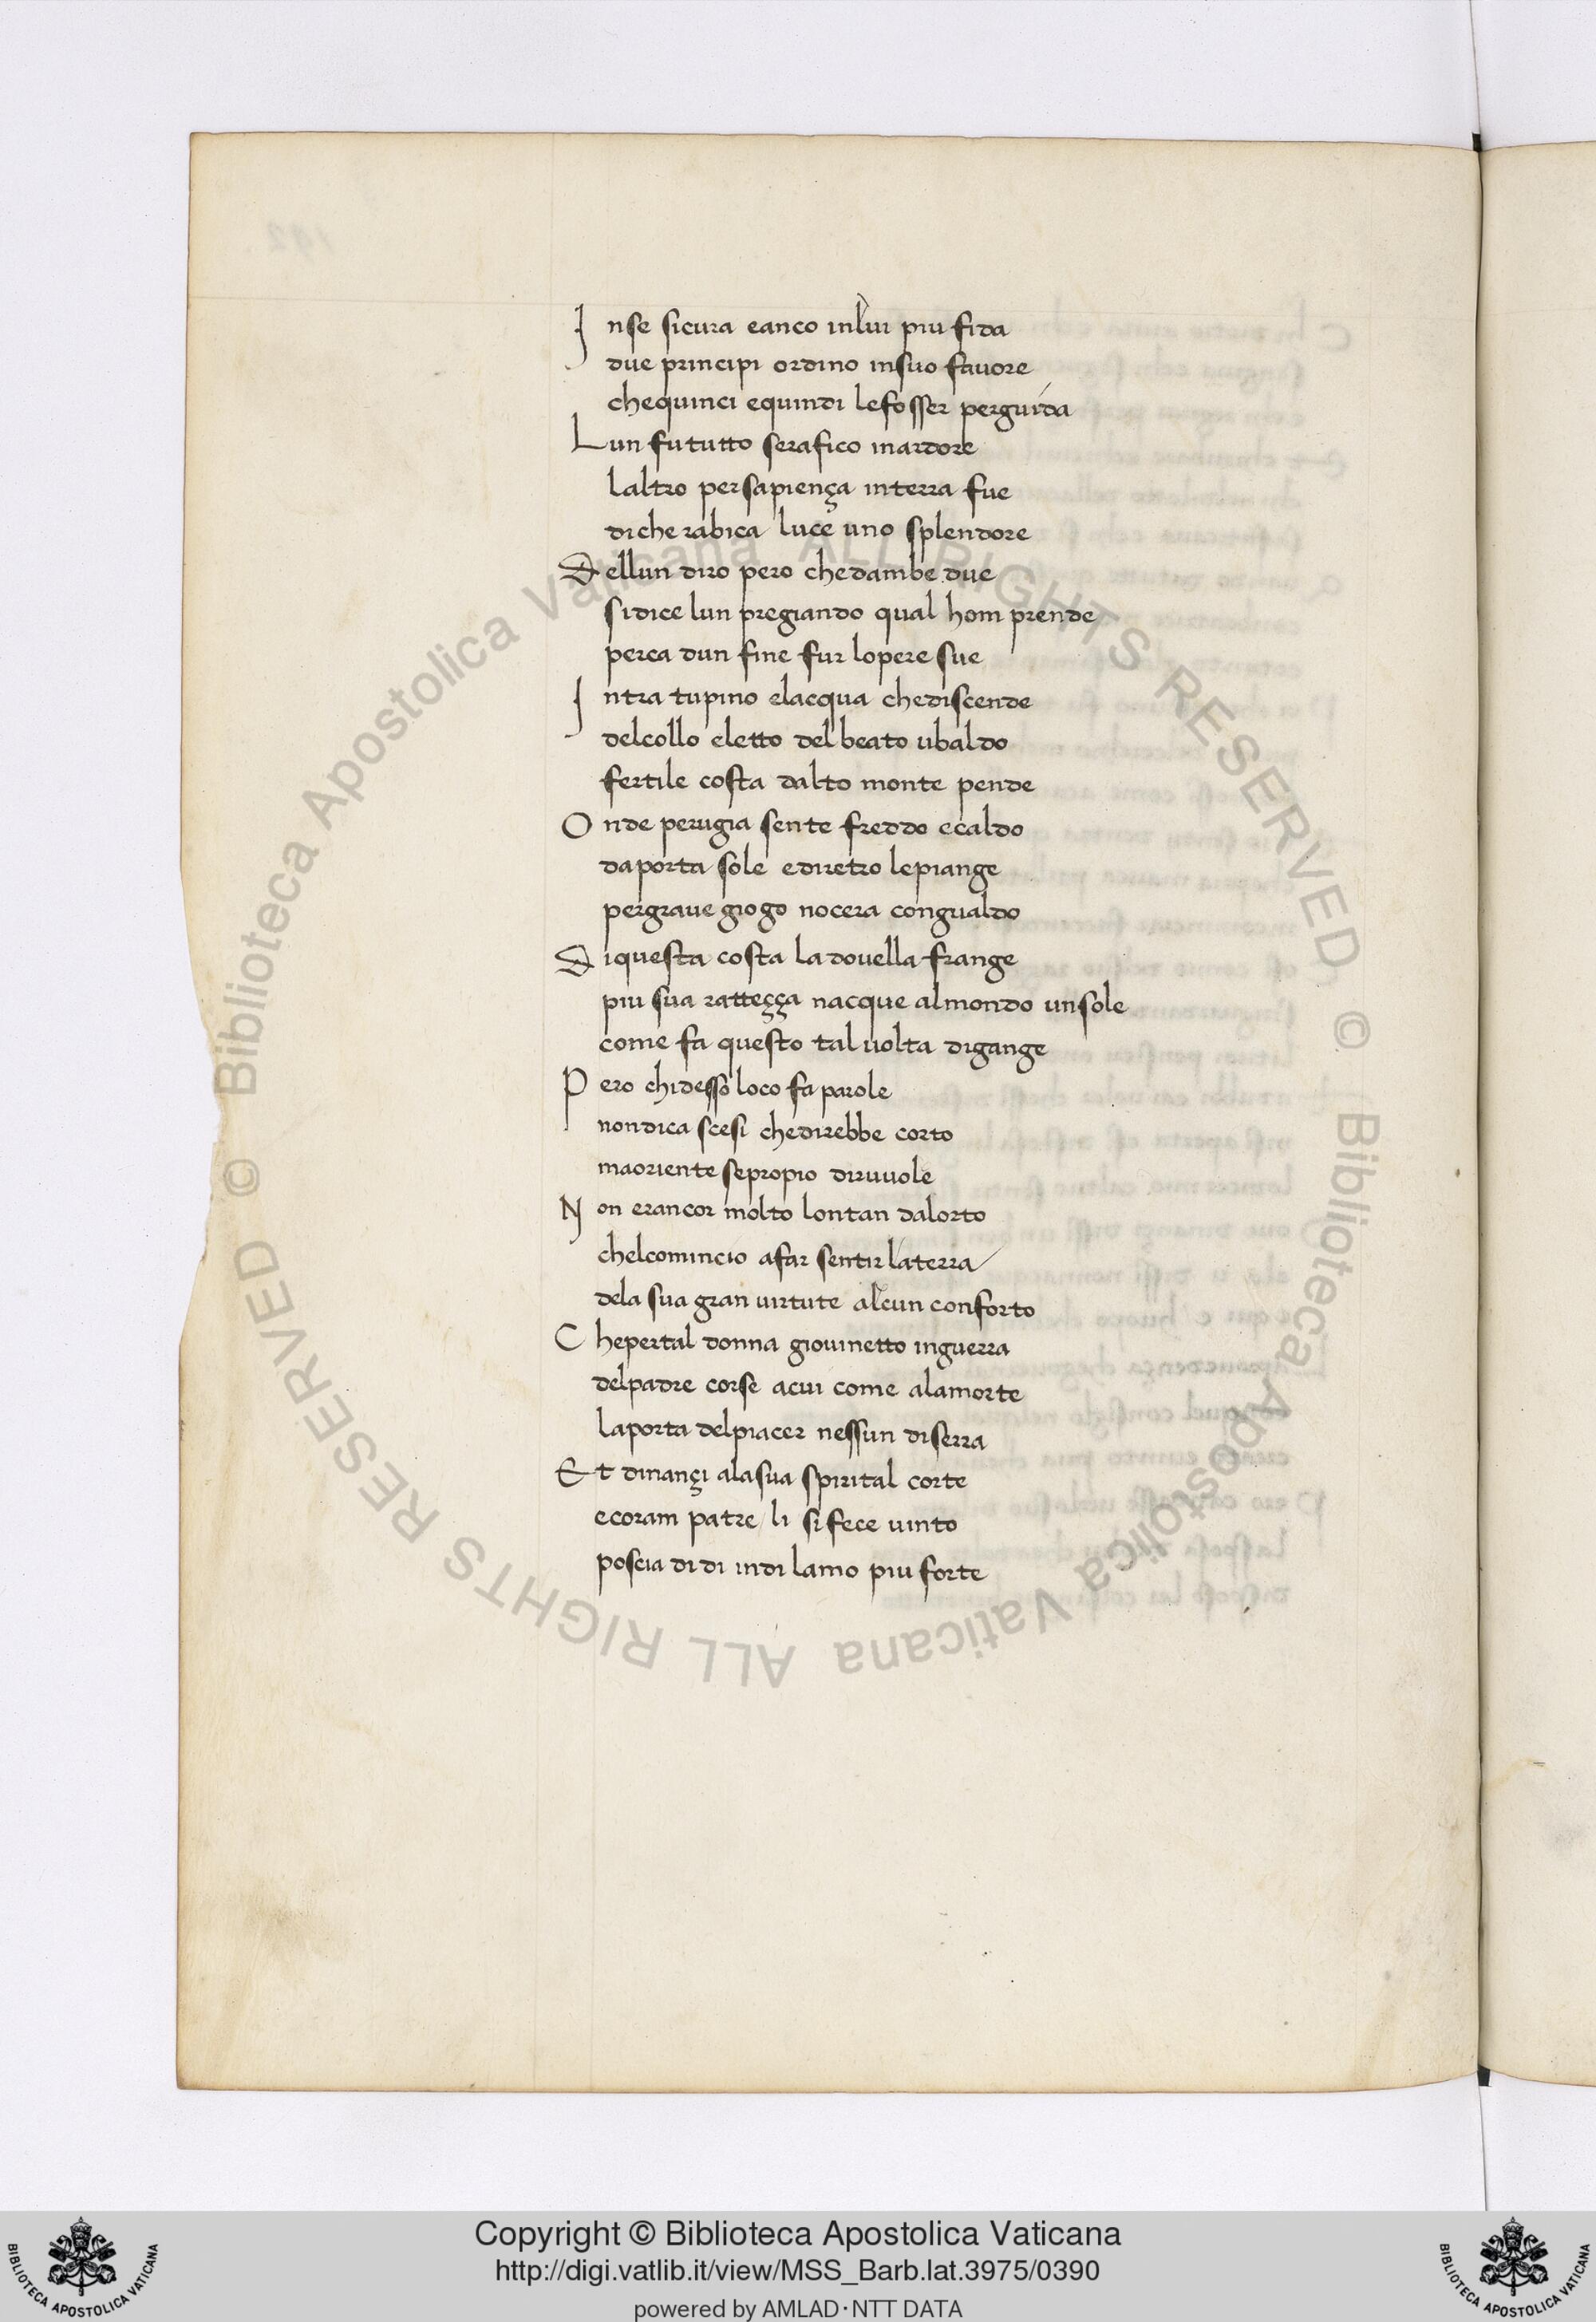 Inse sicura eanco inlui piu fida
due principi ordino insuo fauore
chequinci equindi lefosser perguida
Lun fu tutto serafico inardore
laltro persapiença interra fue
diche rabica luce uno splendore
Dellun diro pero chedambe due
sidice lun pregiando qual hom prende
perca dun fine fur lopere sue
Intra tupino elacqua chediscende
delcollo eletto del beato ubaldo
fertile costa dalto monte pende
Onde perugia sente freddo ecaldo
daporta sole ediretro lepiange
pergraue giogo nocera congualdo
Diquesta costa la douella frange
piu sua ratteçça nacque almondo unsole
come fa questo tal uolta digange
Pero chidesso loco fa parole
nondica scesi chedirebbe corto
maoriente sepropio diruuole
Non erancor molto lontan dalorto
chelcomincio afar sentir laterra
dela sua gran uirtute alcun conforto
Chepertal donna giouinetto inguerra
delpadre corse acui come alamorte
laporta delpiacer nessun diserra
Et dinançi alasua spirital corte
ecoram patre li si fece uinto
poscia di di indi lamo piu forte
© Biblioteca Apostolica Vaticana ALL RIGHTS RESERVED © Biblioteca Apostolica Vaticana ALL RIGHTS RESERVED
Copyright © Biblioteca Apostolica Vaticana
http://digi.vatlib.it/view/MSS_Barb.lat.3975/0390
powered by AMLAD·NTT DATA
BIBLIOTECA APOSTOLICA VATICANA
BIBLIOTECA APOSTOLICA VATICANA